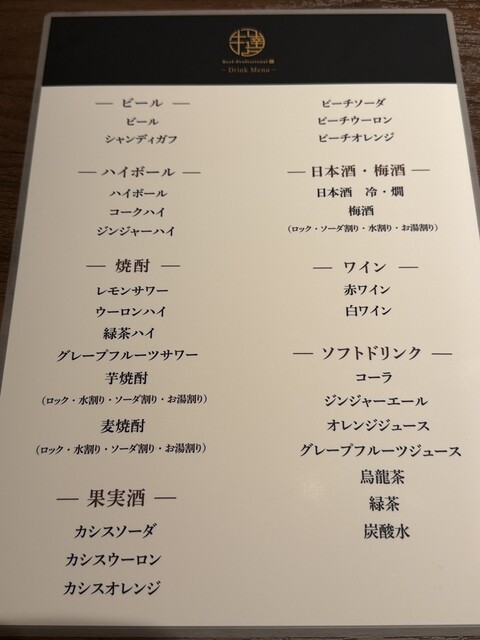 Beef Professional
– Drink Menu –
— ビール —
ビール
シャンディガフ
— ハイボール —
ハイボール
コークハイ
ジンジャーハイ
— 焼酎 —
レモンサワー
ウーロンハイ
緑茶ハイ
グレープフルーツサワー
芋焼酎
（ロック・水割り・ソーダ割り・お湯割り）
麦焼酎
（ロック・水割り・ソーダ割り・お湯割り）
— 果実酒 —
カシスソーダ
カシスウーロン
カシスオレンジ
ピーチソーダ
ピーチウーロン
ピーチオレンジ
— 日本酒・梅酒 —
日本酒　冷・燗
梅酒
（ロック・ソーダ割り・水割り・お湯割り）
— ワイン —
赤ワイン
白ワイン
— ソフトドリンク —
コーラ
ジンジャーエール
オレンジジュース
グレープフルーツジュース
烏龍茶
緑茶
炭酸水